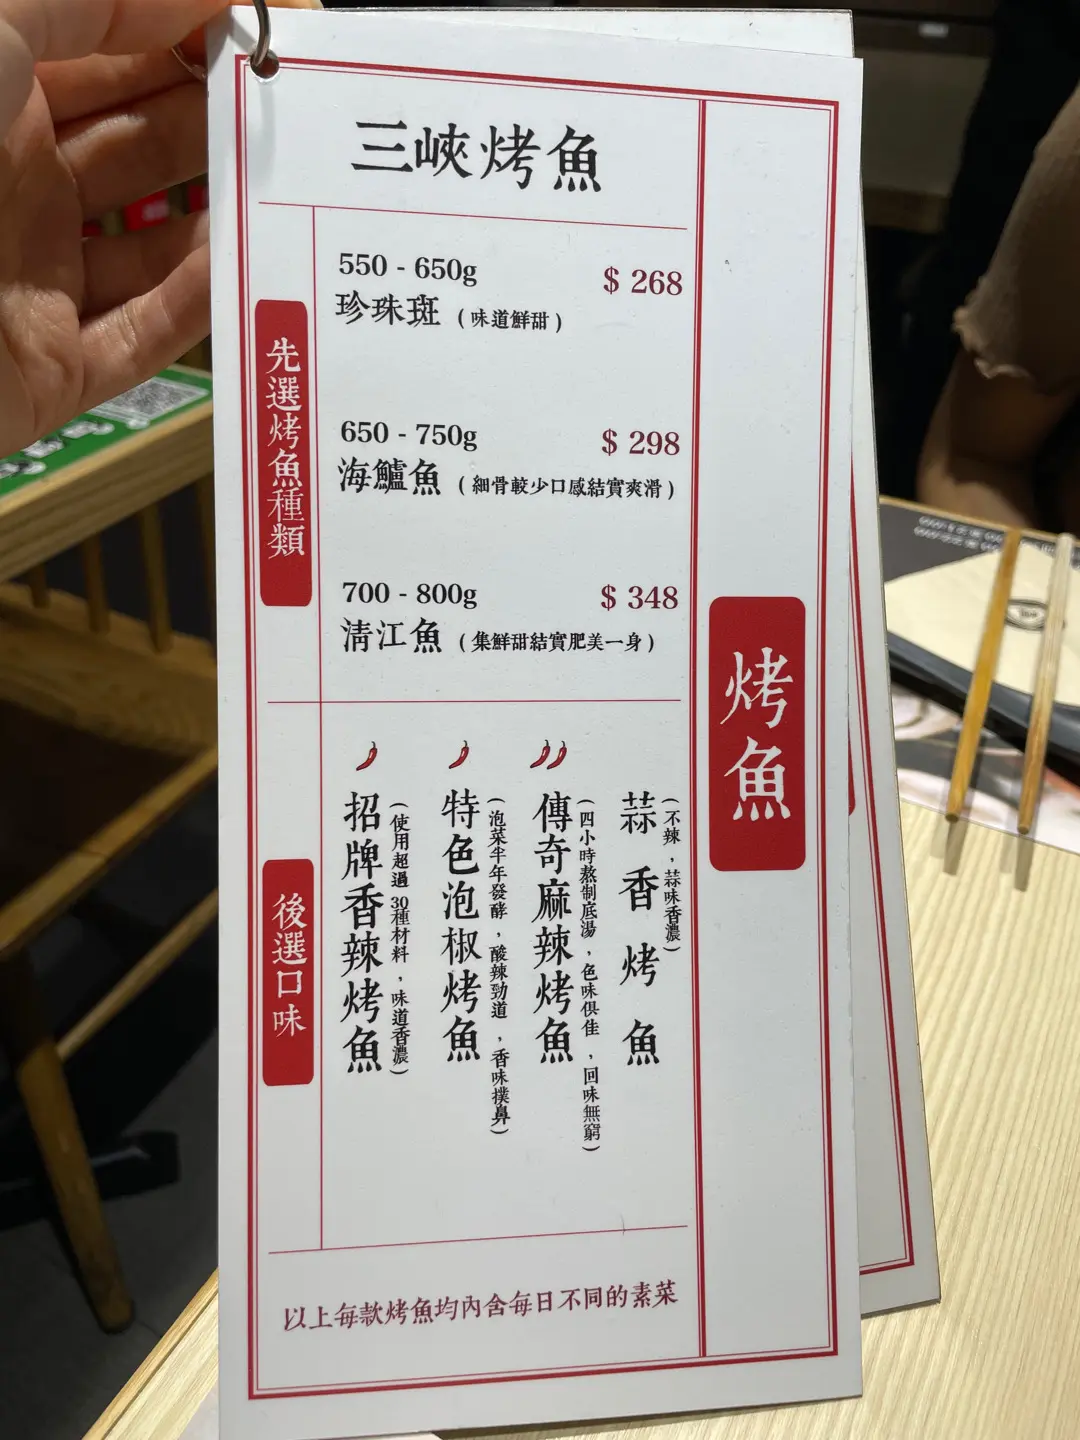 三峽烤魚
先選烤魚種類
550 - 650g
$ 268
珍珠斑 (味道鮮甜)
650 - 750g
$ 298
海鱸魚 (細骨較少口感結實爽滑)
700 - 800g
$ 348
清江魚 (集鮮甜結實肥美一身)
後選口味
招牌香辣烤魚
(使用超過30種材料，味道香濃)
特色泡椒烤魚
(泡菜半年發酵，酸辣勁道，香味撲鼻)
傳奇麻辣烤魚
(四小時熬制底湯，色味俱佳，回味無窮)
蒜香烤魚
(不辣，蒜味香濃)
以上每款烤魚均內含每日不同的素菜
烤魚